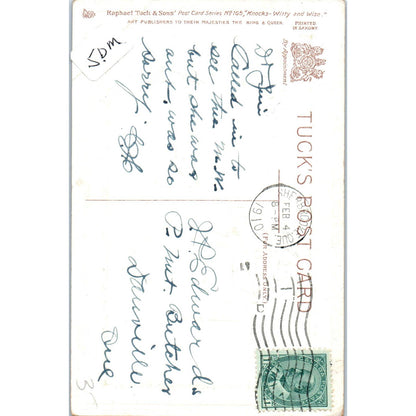 Raphael Tuck & Sons' Post Card Series Nº 165, "Knocks - Witty and Wise."
ART PUBLISHERS TO THEIR MAJESTIES THE KING & QUEEN.
PRINTED IN SAXONY
By Appointment
TUCK'S POST CARD
(FOR ADDRESS ONLY)
Called in to
see this m.
but she was
out, was so
sorry.
FEB 4
8-PM
1910
J. H. Edwards
P. Mt. Butcher
Danville
Que
35